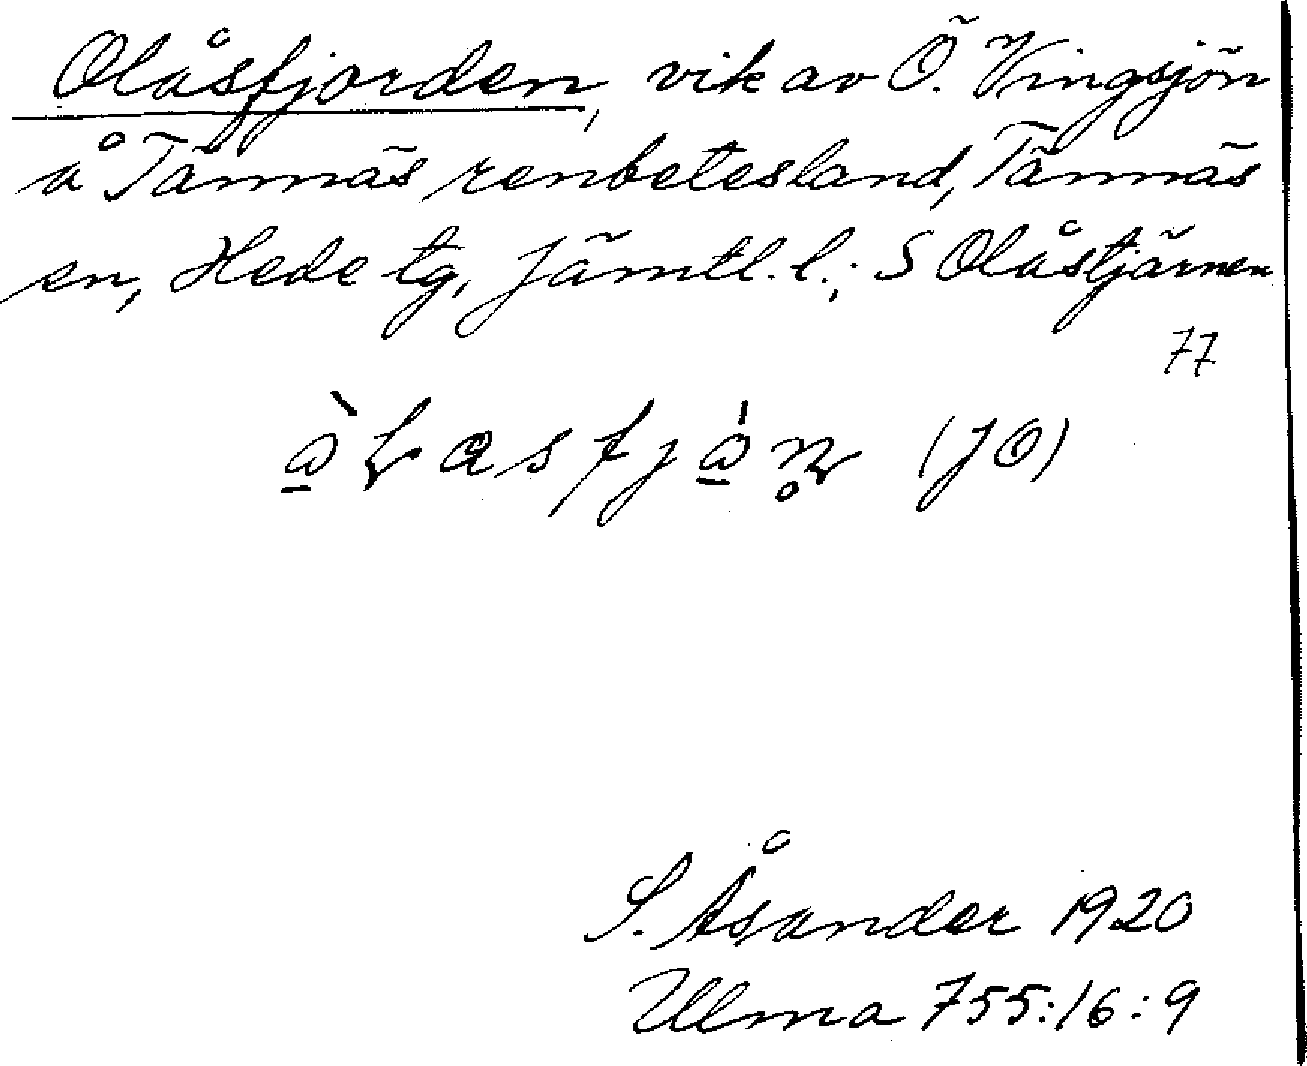 Olåsfjorden, vik av Ö. Vingsjön
å Tännäs renbetesland, Tännäs
sn, Hede tg, Jämtl. l.; S Olåstjärnen
77
(JO)
S. Åsander 1920
Ulma 755:16:9